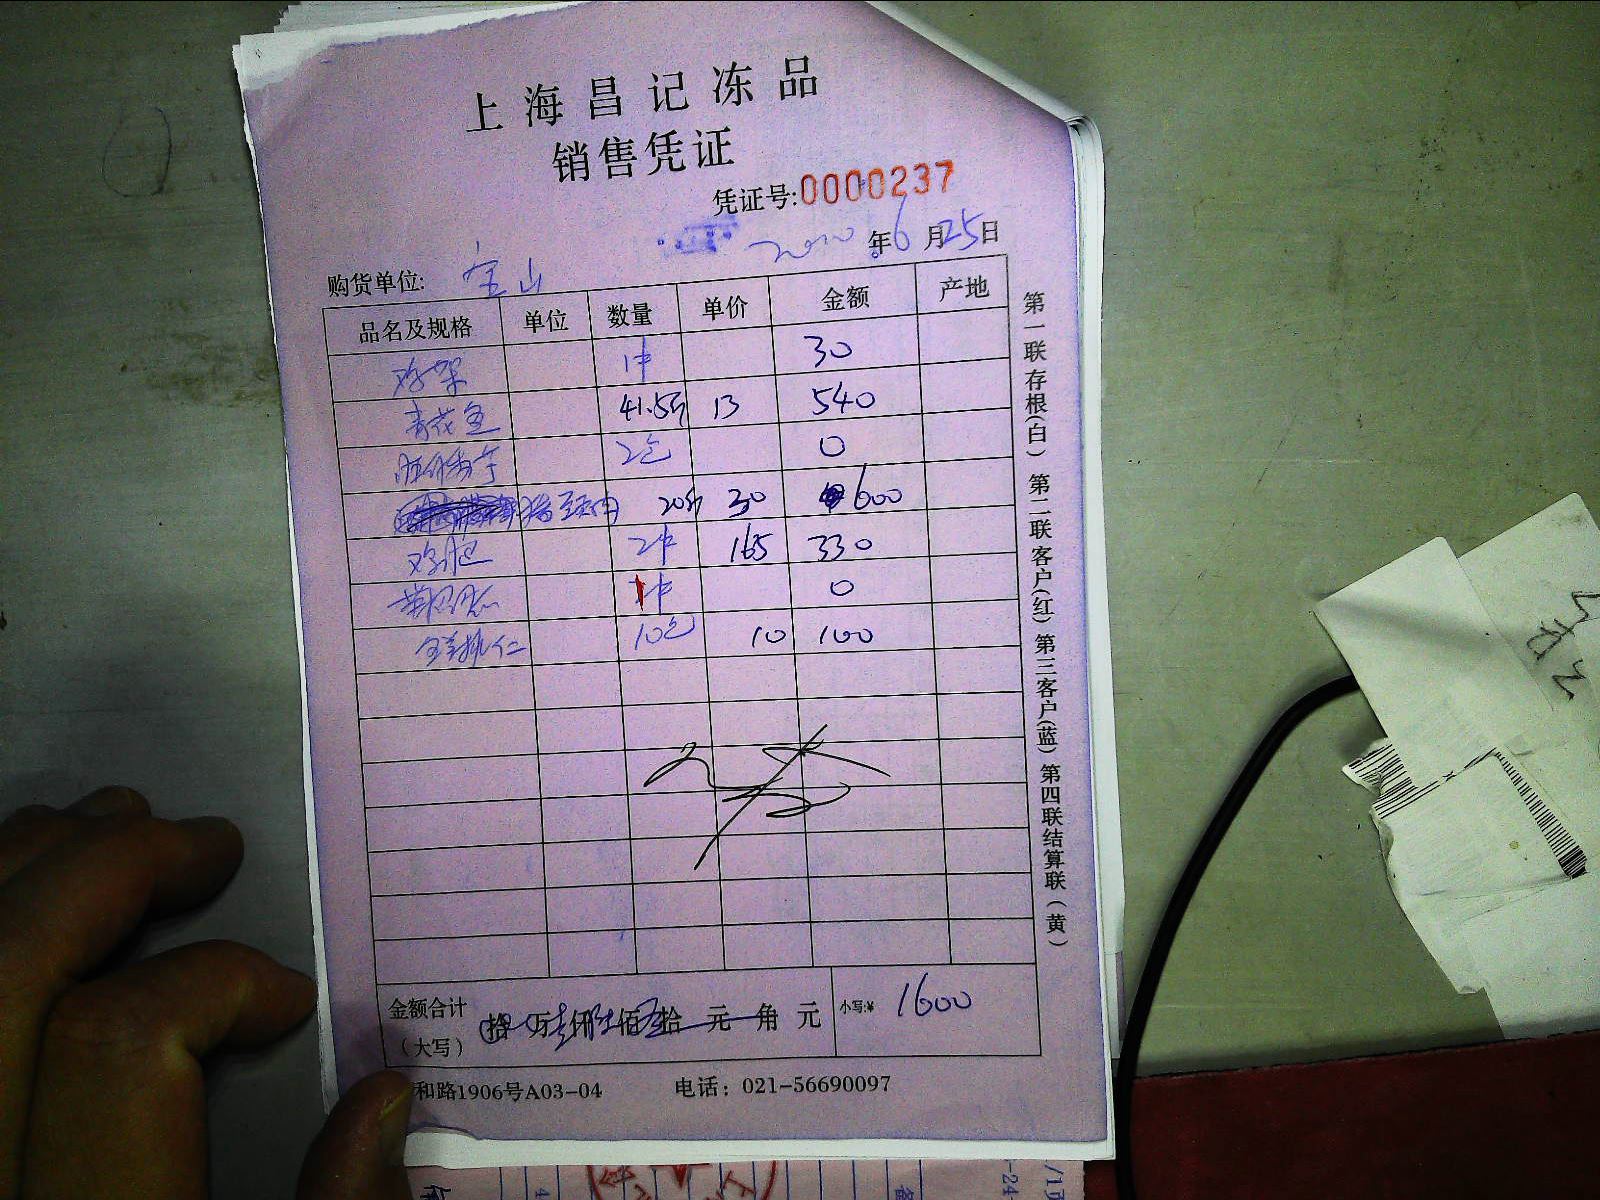 上海昌记冻品
销售凭证
凭证号:0000237
2020年6月25日
购货单位: 宝山
品名及规格 单位 数量 单价 金额 产地
鸡架 1件 30
青花鱼 41.5斤 13 540
2包 0
猪颈肉 20斤 30 600
2件 165 330
1件 0
10包 10 100
金额合计
(大写)
拾 万 仟 佰 拾 元 角 元 小写:¥ 1600
和路1906号A03-04 电话: 021-56690097
第一联存根(白) 第二联客户(红) 第三客户(蓝) 第四联结算联(黄)